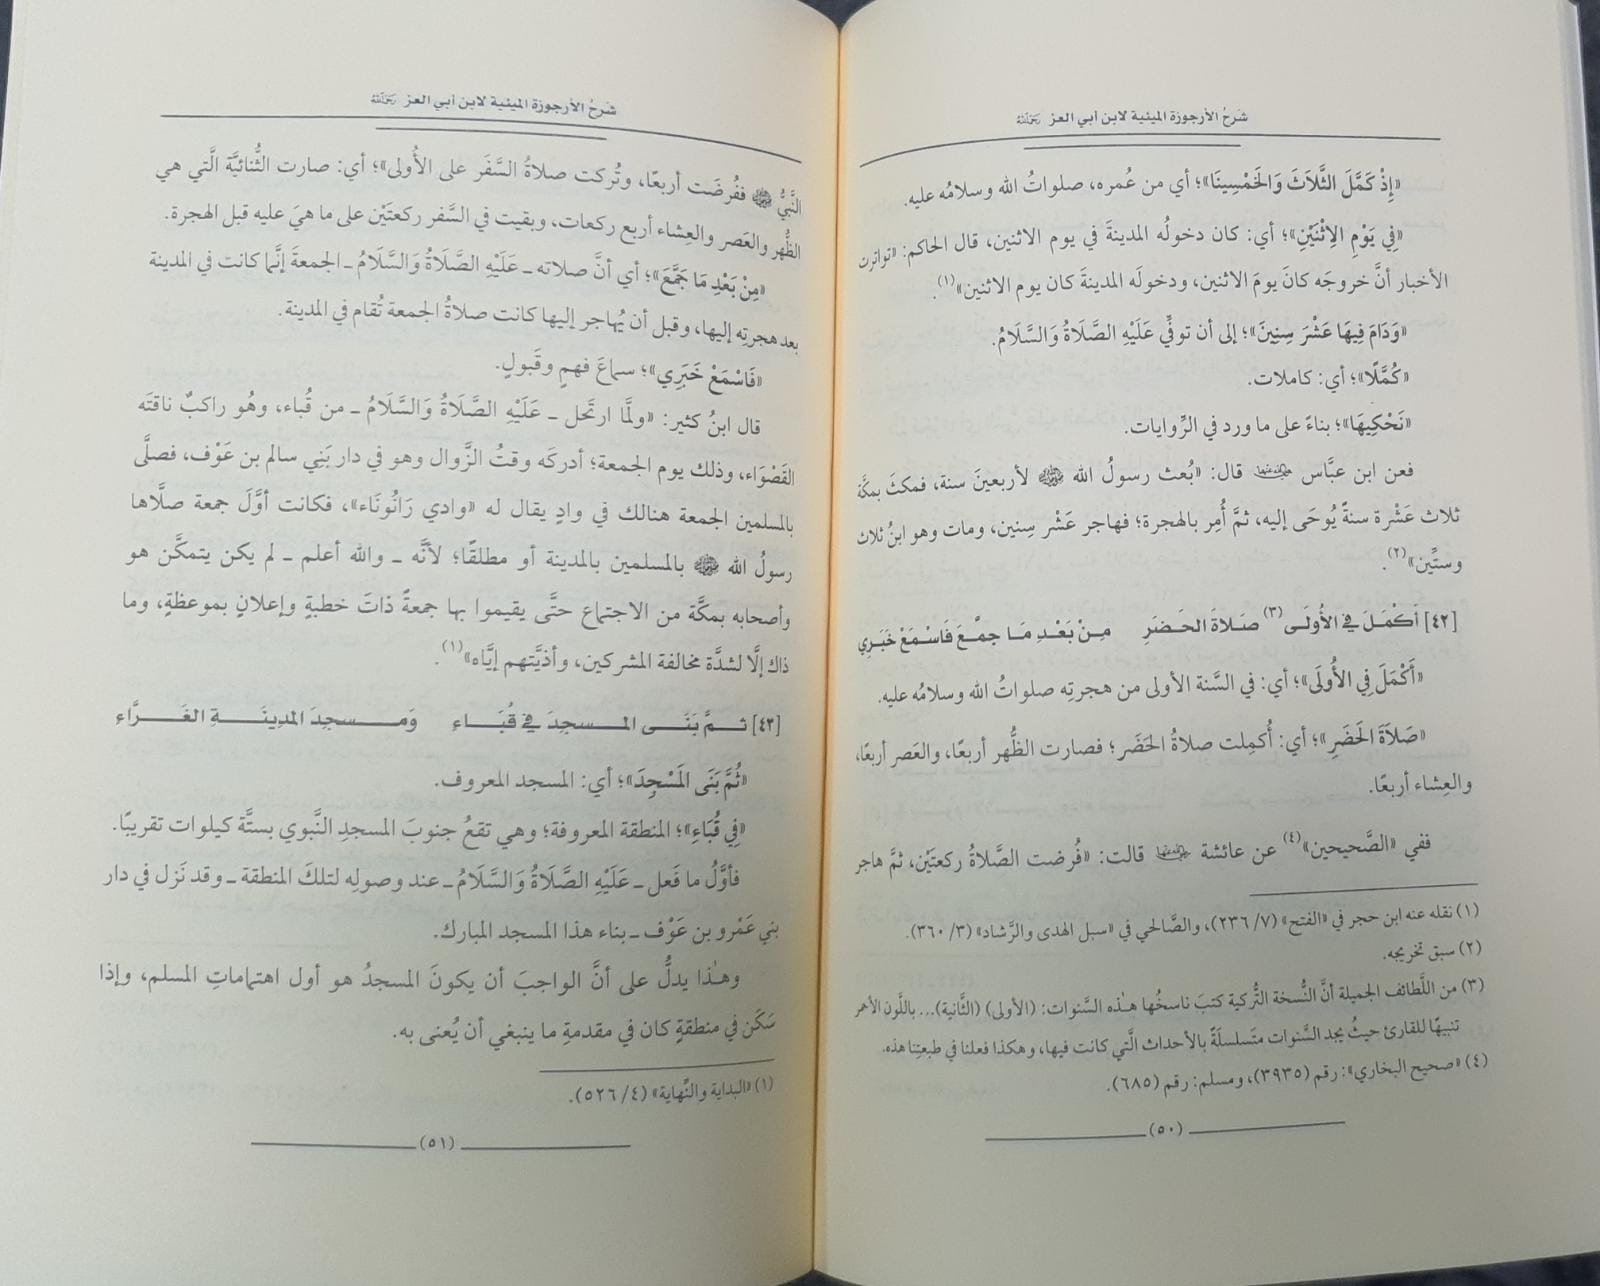 شَرحُ الأرجوزة الميئية لابن أبي العز رَحِمَهُ اللَّهُ
«إِذْ كَمَّلَ الثَّلَاثَ وَالخَمْسِينَا»؛ أي من عُمره، صلواتُ الله وسلامُه عليه.
«فِي يَوْمِ الِاثْنَيْنِ»؛ أي: كان دخولُه المدينةَ في يوم الاثنين، قال الحاكم: «تواترت
الأخبار أنَّ خروجَه كانَ يومَ الاثنين، ودخولَه المدينةَ كان يوم الاثنين»(١).
«وَدَامَ فِيهَا عَشْرَ سِنِينَ»؛ إلى أن توفِّي عَلَيْهِ الصَّلَاةُ وَالسَّلَامُ.
«كُمَّلًا»؛ أي: كاملات.
«نَحْكِيهَا»؛ بناءً على ما ورد في الرِّوايات.
فعن ابن عبَّاس رضي الله عنهما قال: «بُعث رسولُ الله ﷺ لأربعينَ سنة، فمكثَ بمكَّة
ثلاث عَشْرة سنةً يُوحَى إليه، ثمَّ أُمِر بالهجرة؛ فهاجر عَشْر سِنين، ومات وهو ابنُ ثلاث
وستِّين»(٢).
[٤٢] أَكْمَلَ فِي الأُولَى(٣) صَلاَةَ الحَضَرِ مِنْ بَعْدِ مَا جمَّعَ فَاسْمَعْ خَبَرِي
«أَكْمَلَ فِي الأُولَى»؛ أي: في السَّنة الأولى من هجرتِه صلواتُ الله وسلامُه عليه.
«صَلَاةَ الحَضَرِ»؛ أي: أُكمِلت صلاةُ الحَضَر؛ فصارت الظُّهر أربعًا، والعَصر أربعًا،
والعِشاء أربعًا.
ففي «الصَّحيحين»(٤) عن عائشة رضي الله عنها قالت: «فُرضت الصَّلاةُ ركعتَيْن، ثمَّ هاجر
(١) نقله عنه ابن حجر في «الفتح» (٧/ ٢٣٦)، والصَّالحي في «سبل الهدى والرَّشاد» (٣/ ٣٦٠).
(٢) سبق تخريجه.
(٣) من اللَّطائف الجميلة أنَّ النُّسخة التُّركية كتبَ ناسخُها هٰذه السَّنوات: (الأولى) (الثَّانية)... باللَّون الأحمر
تنبيهًا للقارئ حيثُ يجد السَّنوات متَسلسلَةً بالأحداث الَّتي كانت فيها، وهكذا فعلنا في طبعتِنا هذه.
(٤) «صحيح البخاري»: رقم (٣٩٣٥)، ومسلم: رقم (٦٨٥).
(٥٠)
شَرحُ الأرجوزة الميئية لابن أبي العز رَحِمَهُ اللَّهُ
النَّبيُّ ﷺ ففُرضَت أربعًا، وتُركت صلاةُ السَّفَر على الأُولى»؛ أي: صارت الثُّنائيَّة الَّتي هي
الظُّهر والعَصر والعِشاء أربع ركعات، وبقيت في السَّفر ركعتَيْن على ما هيَ عليه قبل الهجرة.
«مِنْ بَعْدِ مَا جَمَّعَ»؛ أي أنَّ صلاته ـ عَلَيْهِ الصَّلَاةُ وَالسَّلَامُ ـ الجمعةَ إنَّما كانت في المدينة
بعد هجرتِه إليها، وقبل أن يُهاجر إليها كانت صلاةُ الجمعة تُقام في المدينة.
«فَاسْمَعْ خَبَرِي»؛ سماعَ فهمٍ وقَبولٍ.
قال ابنُ كثير: «ولمَّا ارتَحل ـ عَلَيْهِ الصَّلَاةُ وَالسَّلَامُ ـ من قُباء، وهُو راكبٌ ناقتَه
القَصْوَاء، وذلك يوم الجمعة؛ أدركَه وقتُ الزَّوال وهو في دار بَنِي سالم بن عَوْف، فصلَّى
بالمسلمين الجمعة هنالك في وادٍ يقال له «وادي رَانُونَاء»، فكانت أوَّلَ جمعة صلَّاها
رسولُ الله ﷺ بالمسلمين بالمدينة أو مطلقًا؛ لأنَّه ـ والله أعلم ـ لم يكن يتمكَّن هو
وأصحابه بمكَّة من الاجتماع حتَّى يقيموا بها جمعةً ذاتَ خطبةٍ وإعلانٍ بموعظةٍ، وما
ذاك إلَّا لشدَّة مخالفة المشركين، وأذيَّتهم إيَّاه»(١).
[٤٣] ثمَّ بَنَى المسجدَ في قُبَاءِ وَمسجدَ المدِينَةِ الغَرَّاءِ
«ثُمَّ بَنَى المَسْجِدَ»؛ أي: المسجد المعروف.
«فِي قُبَاءِ»؛ المنطقة المعروفة؛ وهي تقعُ جنوبَ المسجدِ النَّبوي بستَّة كيلوات تقريبًا.
فأوَّلُ ما فَعل ـ عَلَيْهِ الصَّلَاةُ وَالسَّلَامُ ـ عند وصولِه لتلكَ المنطقة ـ وقد نَزل في دار
بني عَمْرو بن عَوْف ـ بناء هذا المسجد المبارك.
وهٰذا يدلُّ على أنَّ الواجبَ أن يكونَ المسجدُ هو أول اهتماماتِ المسلم، وإذا
سَكَن في منطقةٍ كان في مقدمةِ ما ينبغي أن يُعنى به.
(١) «البداية والنِّهاية» (٤/ ٥٢٦).
(٥١)